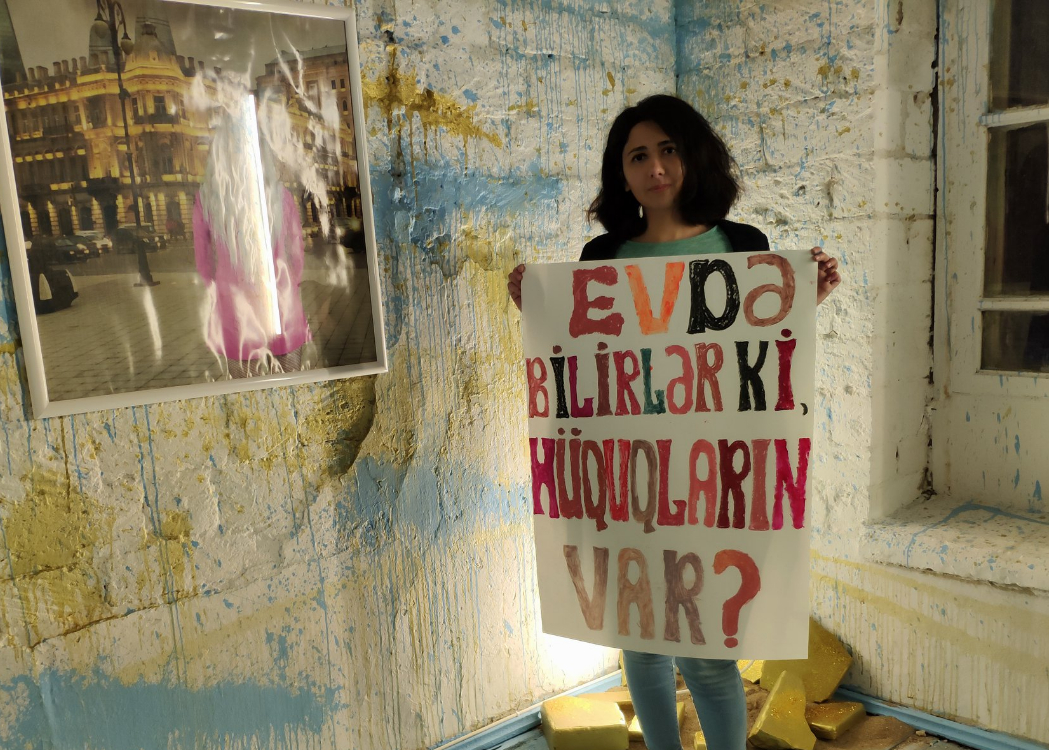 EVDƏ
BİLİRLƏR Kİ,
HÜQUQLARIN
VAR?